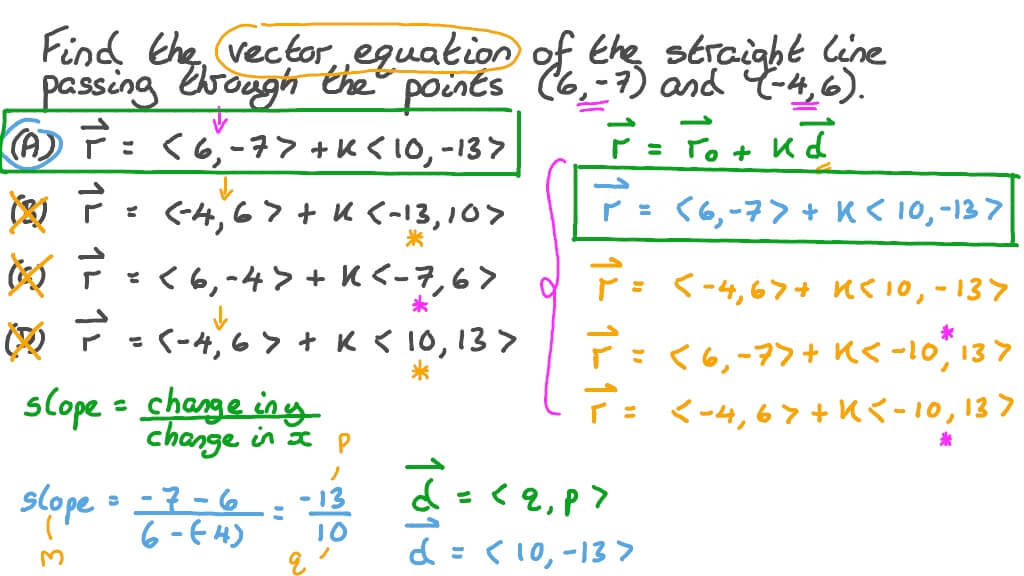 Find the vector equation of the straight line
passing through the points (6,-7) and (-4,6).
(A) r⃗ = <6,-7> + K<10,-13>
(B) r⃗ = <-4,6> + K<-13,10>
*
(C) r⃗ = <6,-4> + K<-7,6>
*
(D) r⃗ = <-4,6> + K<10,13>
*
r⃗ = r⃗₀ + K d⃗
r⃗ = <6,-7> + K<10,-13>
r⃗ = <-4,6> + K<10,-13>
*
r⃗ = <6,-7> + K<-10,13>
r⃗ = <-4,6> + K<-10,13>
*
slope = change in y / change in x
p
slope = -7-6 / 6-(-4) = -13 / 10
m
q
d⃗ = <q,p>
d⃗ = <10,-13>